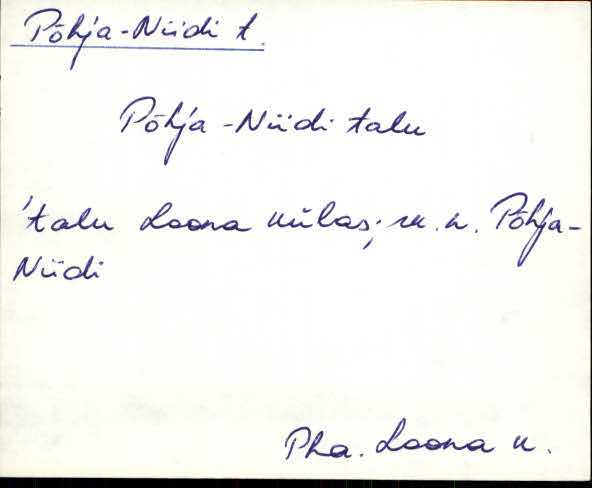 Põhja-Niidi t.
Põhja-Niidi talu
'talu Loona külas; rk. n. Põhja-
Niidi
Pha. Loona k.